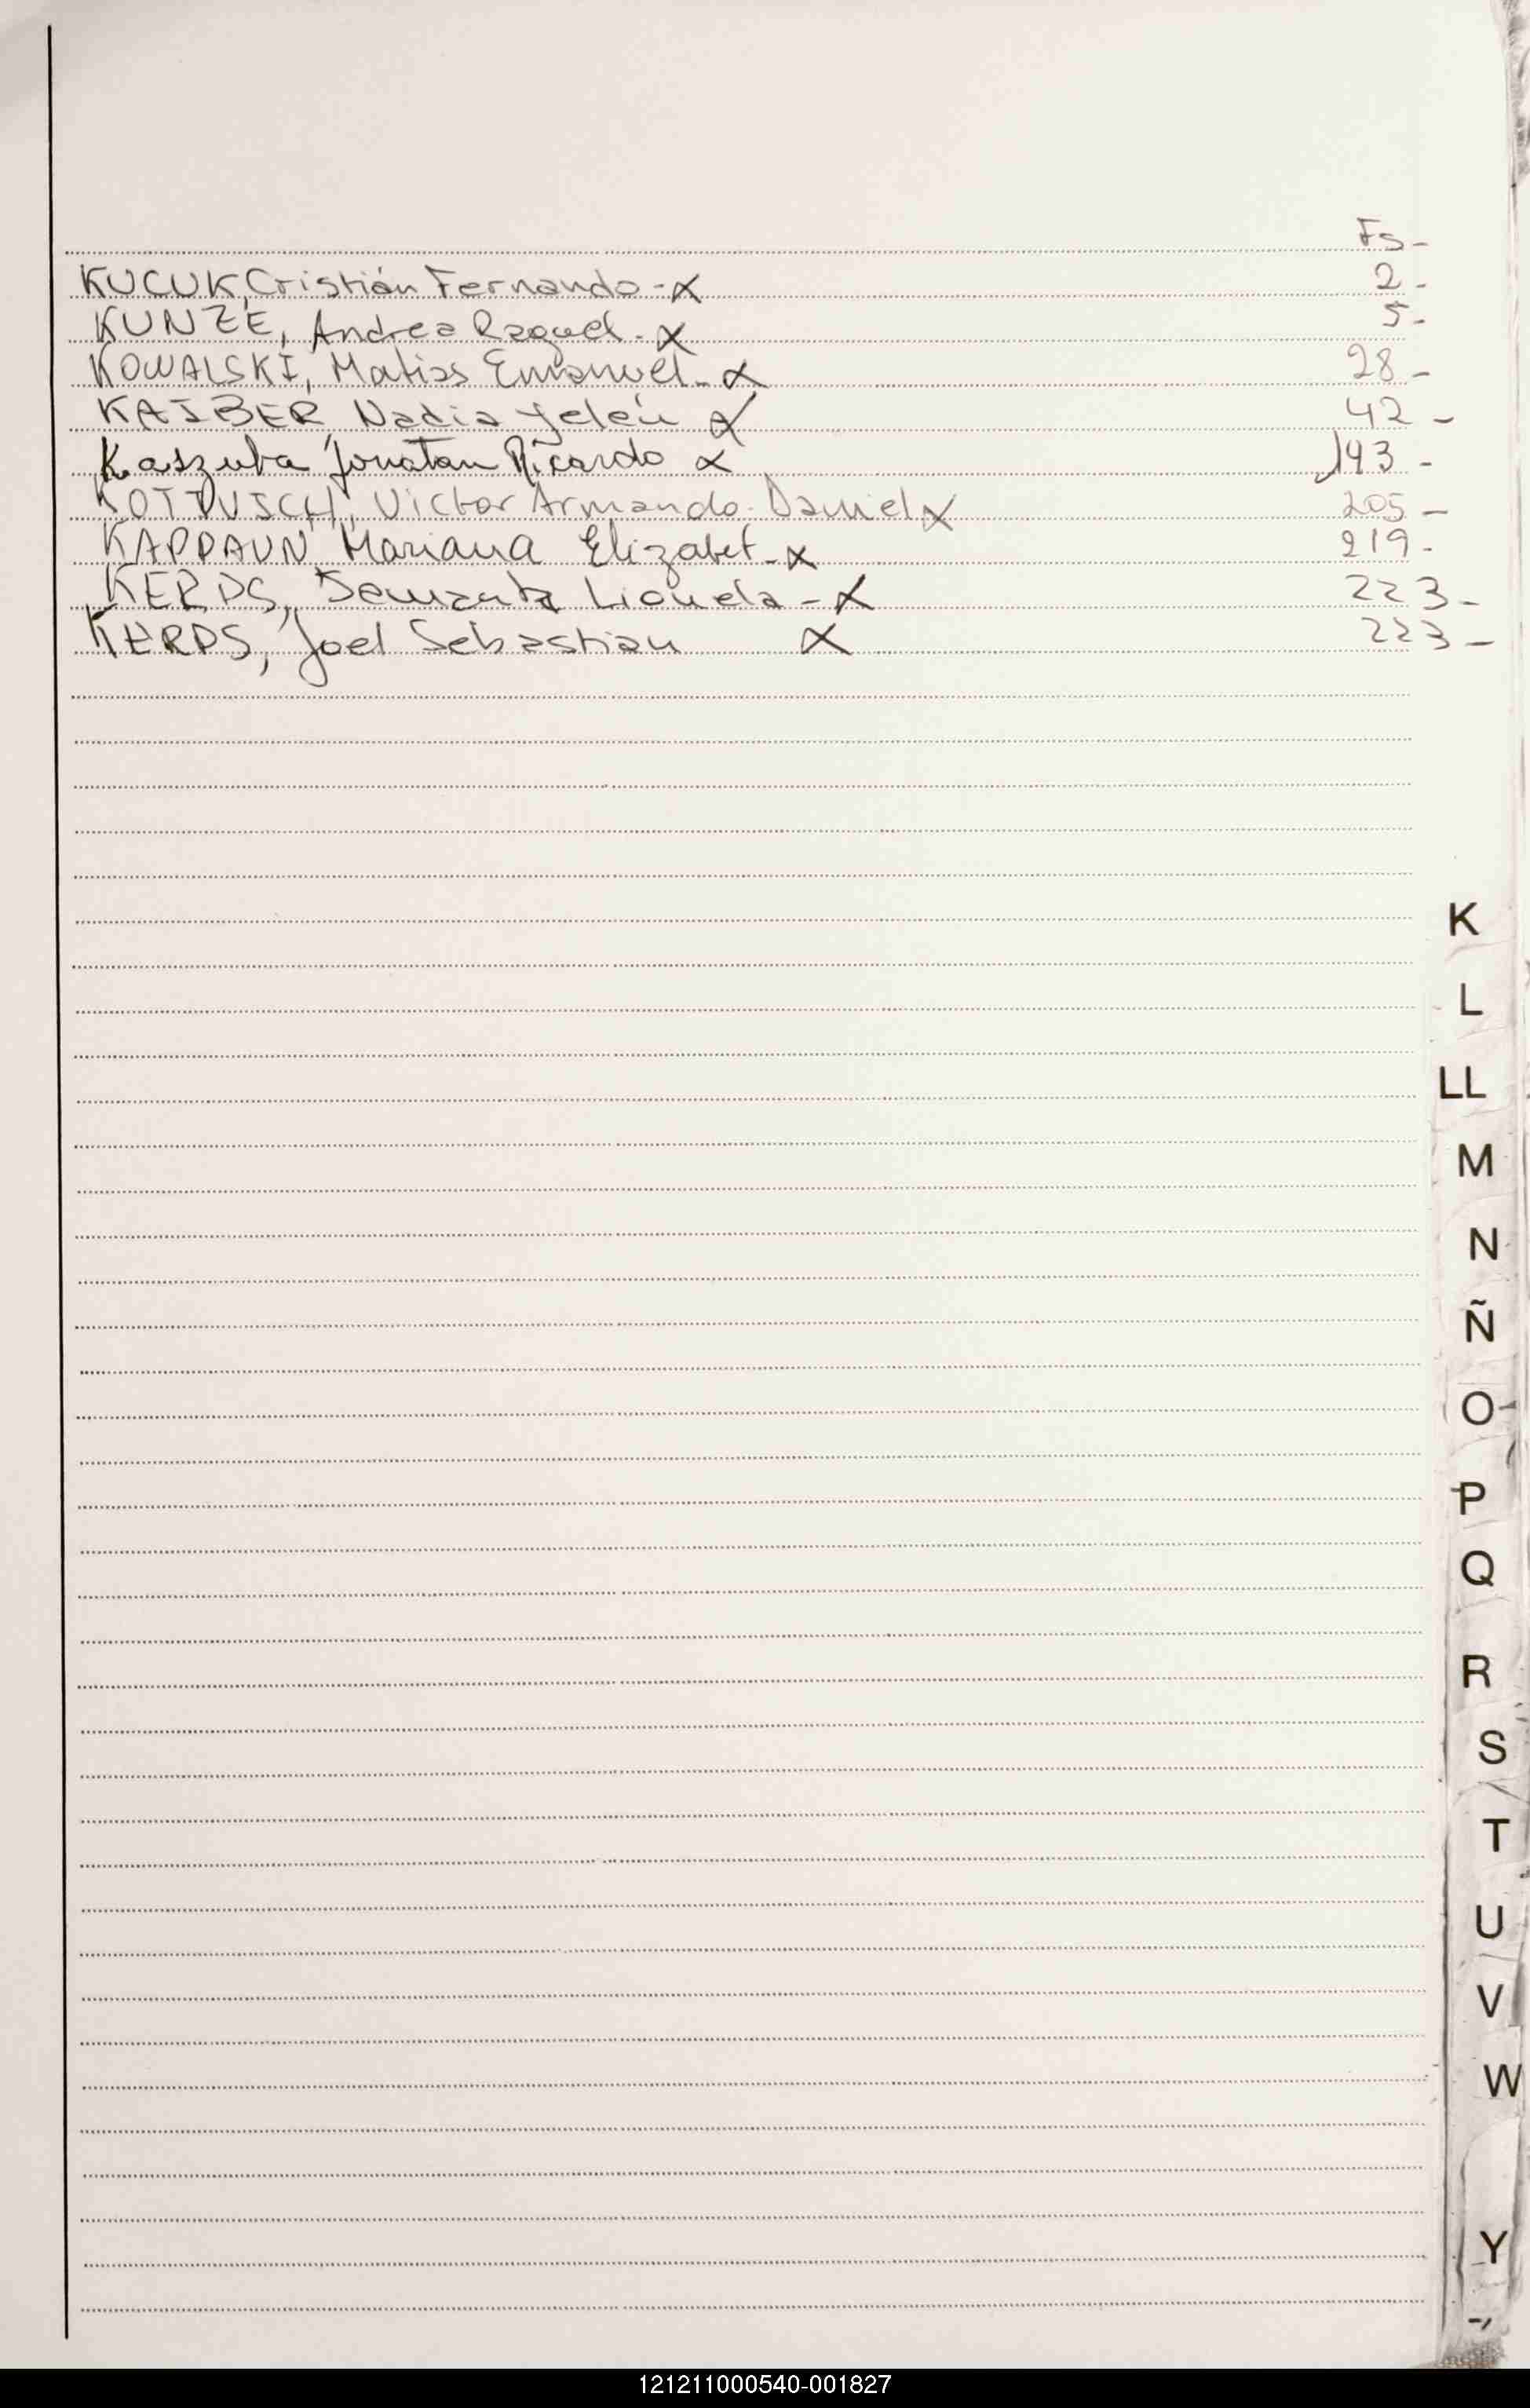 Fs-
KUCUK, Cristián Fernando - x 2 -
KUNZE, Andrea Raquel - x 5 -
KOWALSKI, Matias Emanuel - x 28 -
KAIBER, Nadia Yelén x 42 -
Kaszuba Jonatan Ricardo x 193 -
KOTTVISCH, Victor Armando Daniel x 205 -
KAPPAUN, Mariana Elizabet - x 219 -
KERPS, Lionela - x 223 -
KERPS, Joel Sebastian x 223 -
K
L
LL
M
N
Ñ
O
P
Q
R
S
T
U
V
W
Y
121211000540-001827